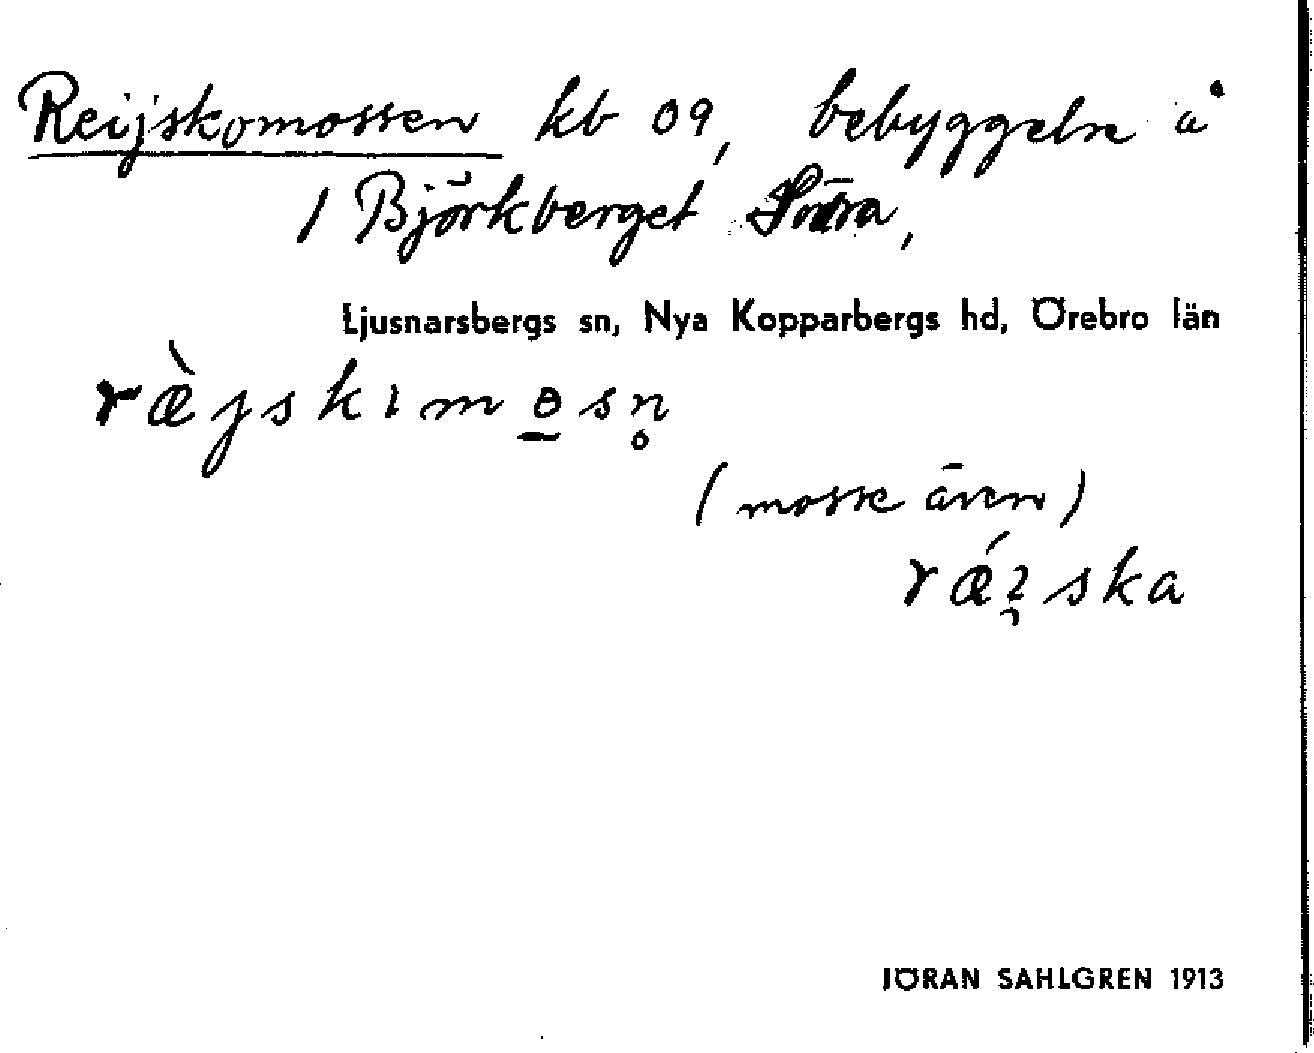 Reijskomossen kb 09, bebyggelse å
1 Björkberget Södra,
Ljusnarsbergs sn, Nya Kopparbergs hd, Örebro län
ræ̀jskımɵ̲sn̥
(mosse även)
ska
JÖRAN SAHLGREN 1913